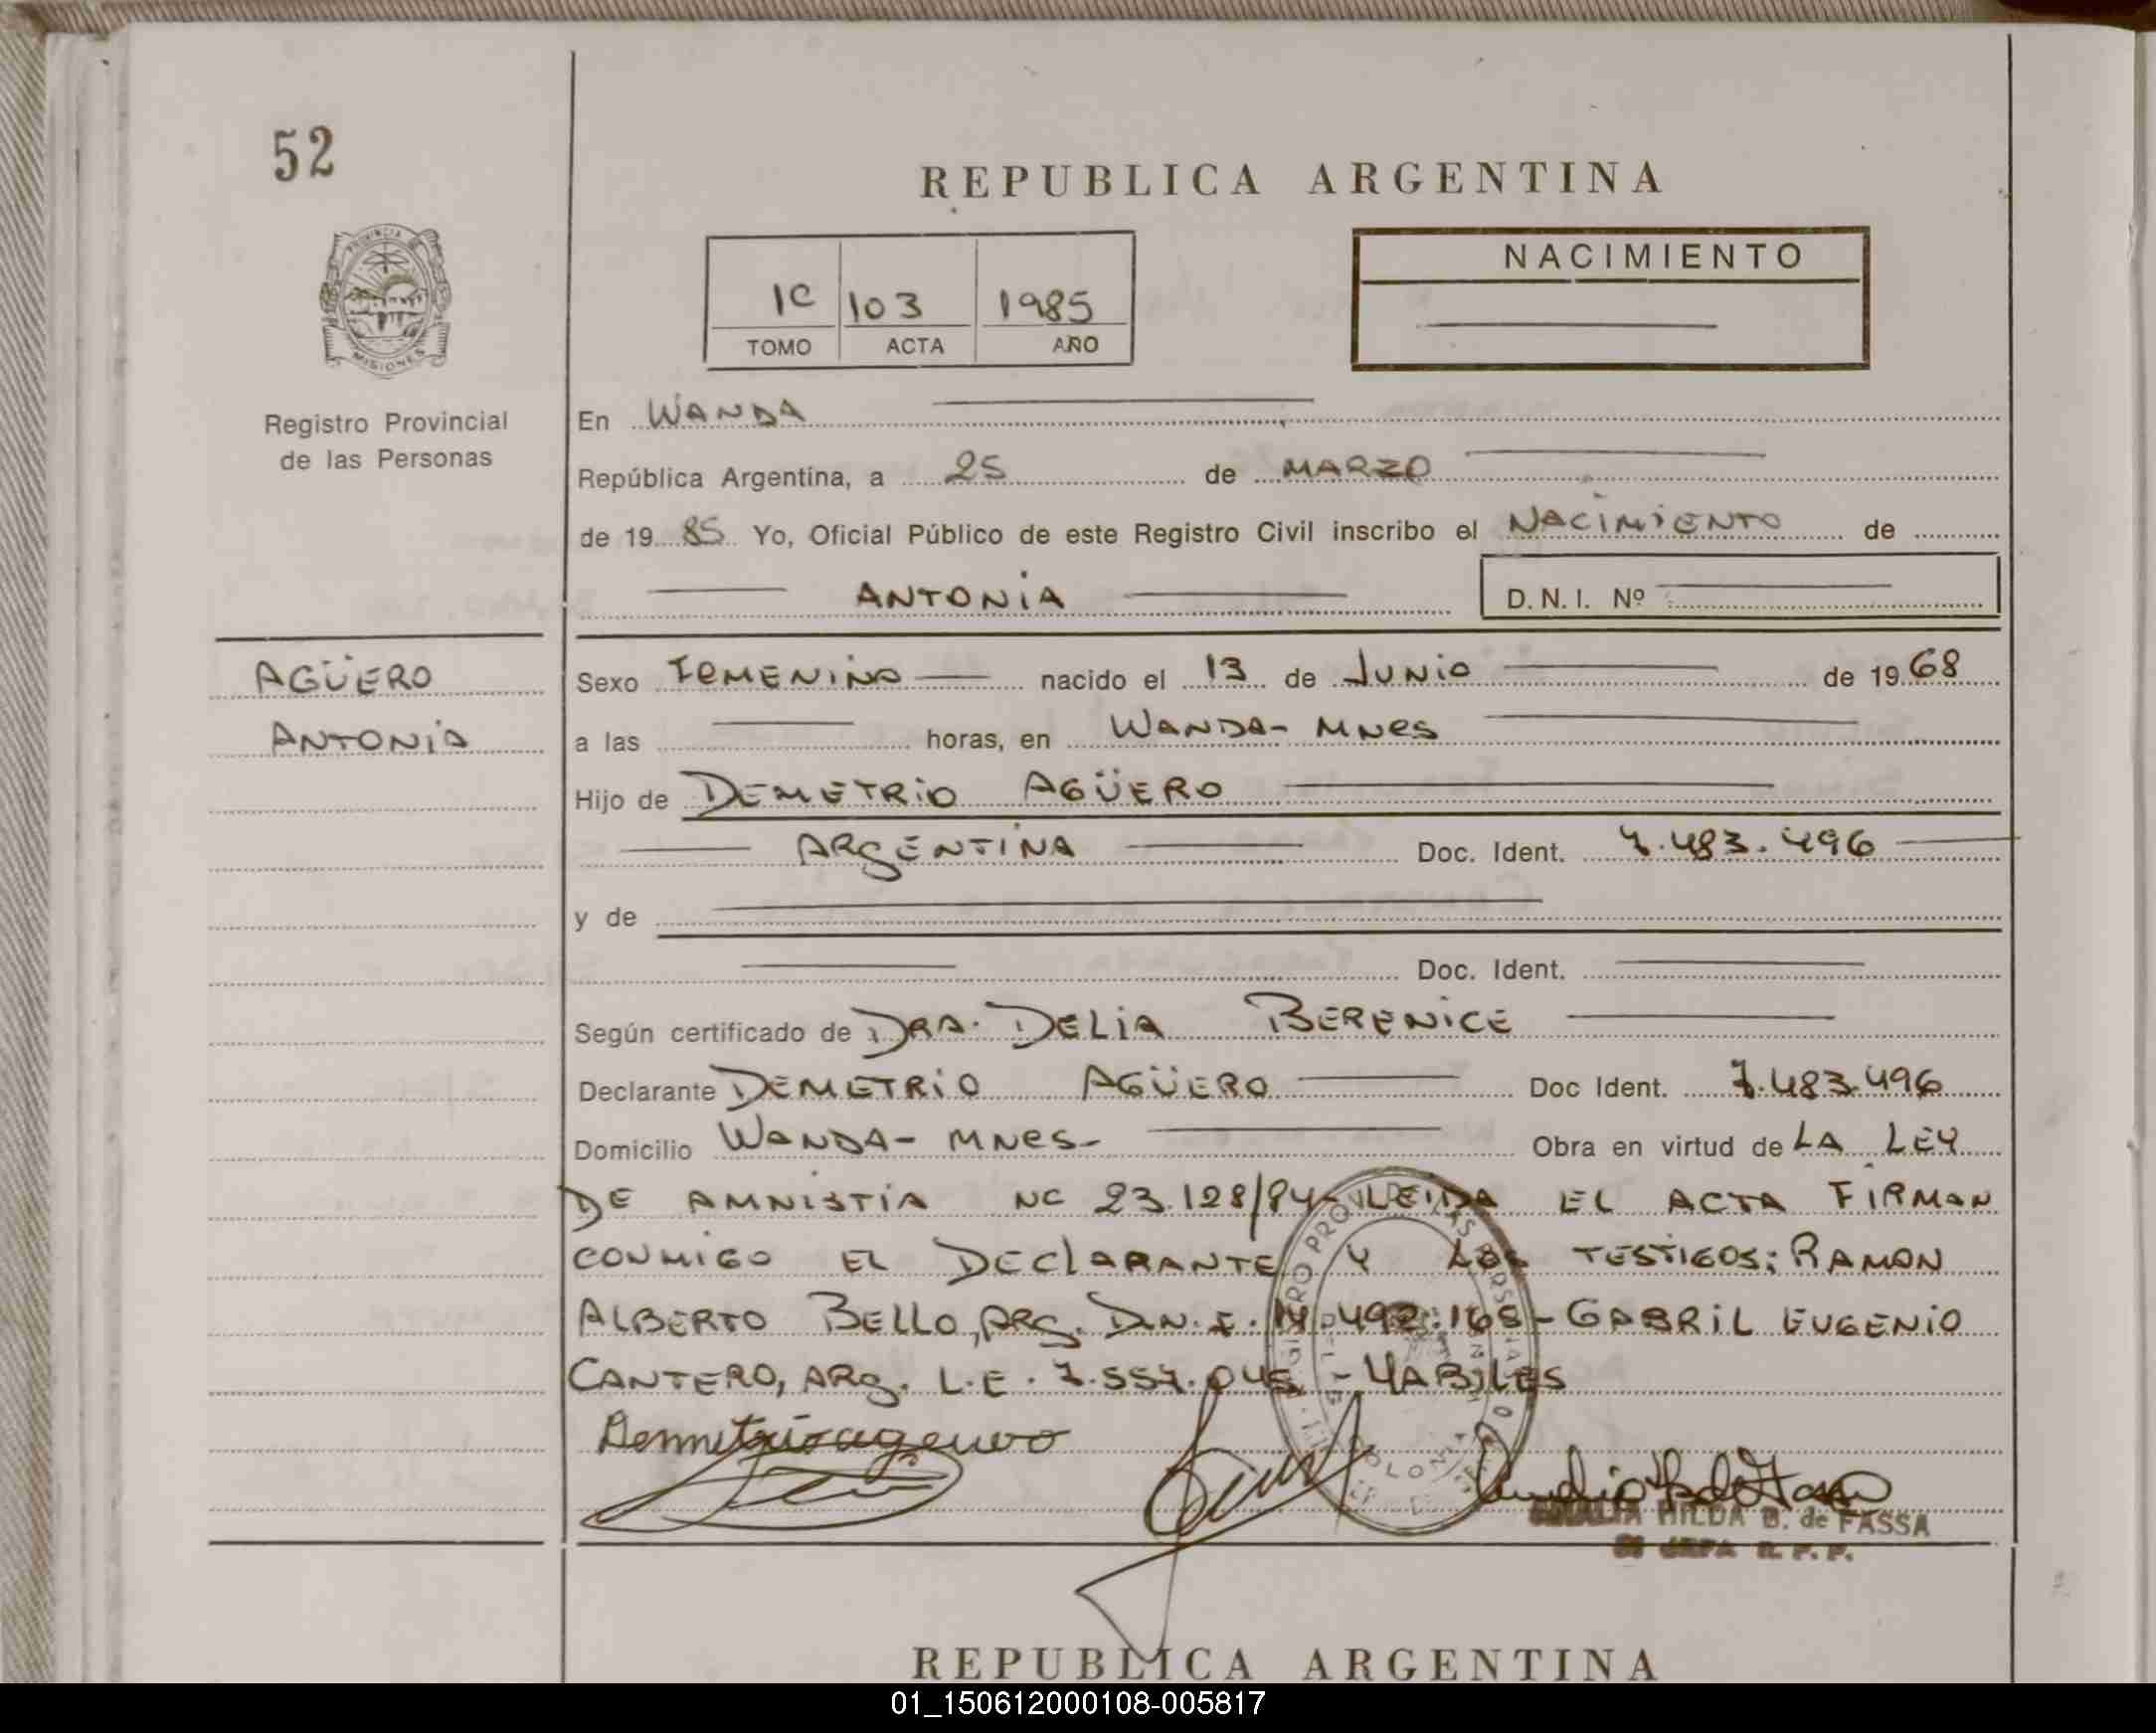 52
REPUBLICA ARGENTINA
PROVINCIA DE
MISIONES
1C 103 1985
TOMO ACTA AÑO
NACIMIENTO
Registro Provincial
de las Personas
En WANDA
República Argentina, a 25 de MARZO
de 19 85 Yo, Oficial Público de este Registro Civil inscribo el NACIMIENTO de
ANTONIA D.N.I. Nº
AGÜERO
ANTONIA
Sexo FEMENINO nacido el 13 de JUNIO de 19 68
a las horas, en WANDA- MNES
Hijo de DEMETRIO AGÜERO
ARGENTINA Doc. Ident. 7.483.496
y de
Doc. Ident.
Según certificado de DRA. DELIA BERENICE
Declarante DEMETRIO AGÜERO Doc Ident. 7.483.496
Domicilio WANDA- MNES- Obra en virtud de LA LEY
DE AMNISTIA NC 23.128/84- LEIDA EL ACTA FIRMAN
CONMIGO EL DECLARANTE Y LOS TESTIGOS: RAMON
ALBERTO BELLO, ARG. D.N.I. 14.492.165- GABRIL EUGENIO
CANTERO, ARG. L.E. 7.557.045 - HABILES
Demetrio aguero
HILDA B. de FASSA
R. P. P.
REPUBLICA ARGENTINA
01_150612000108-005817